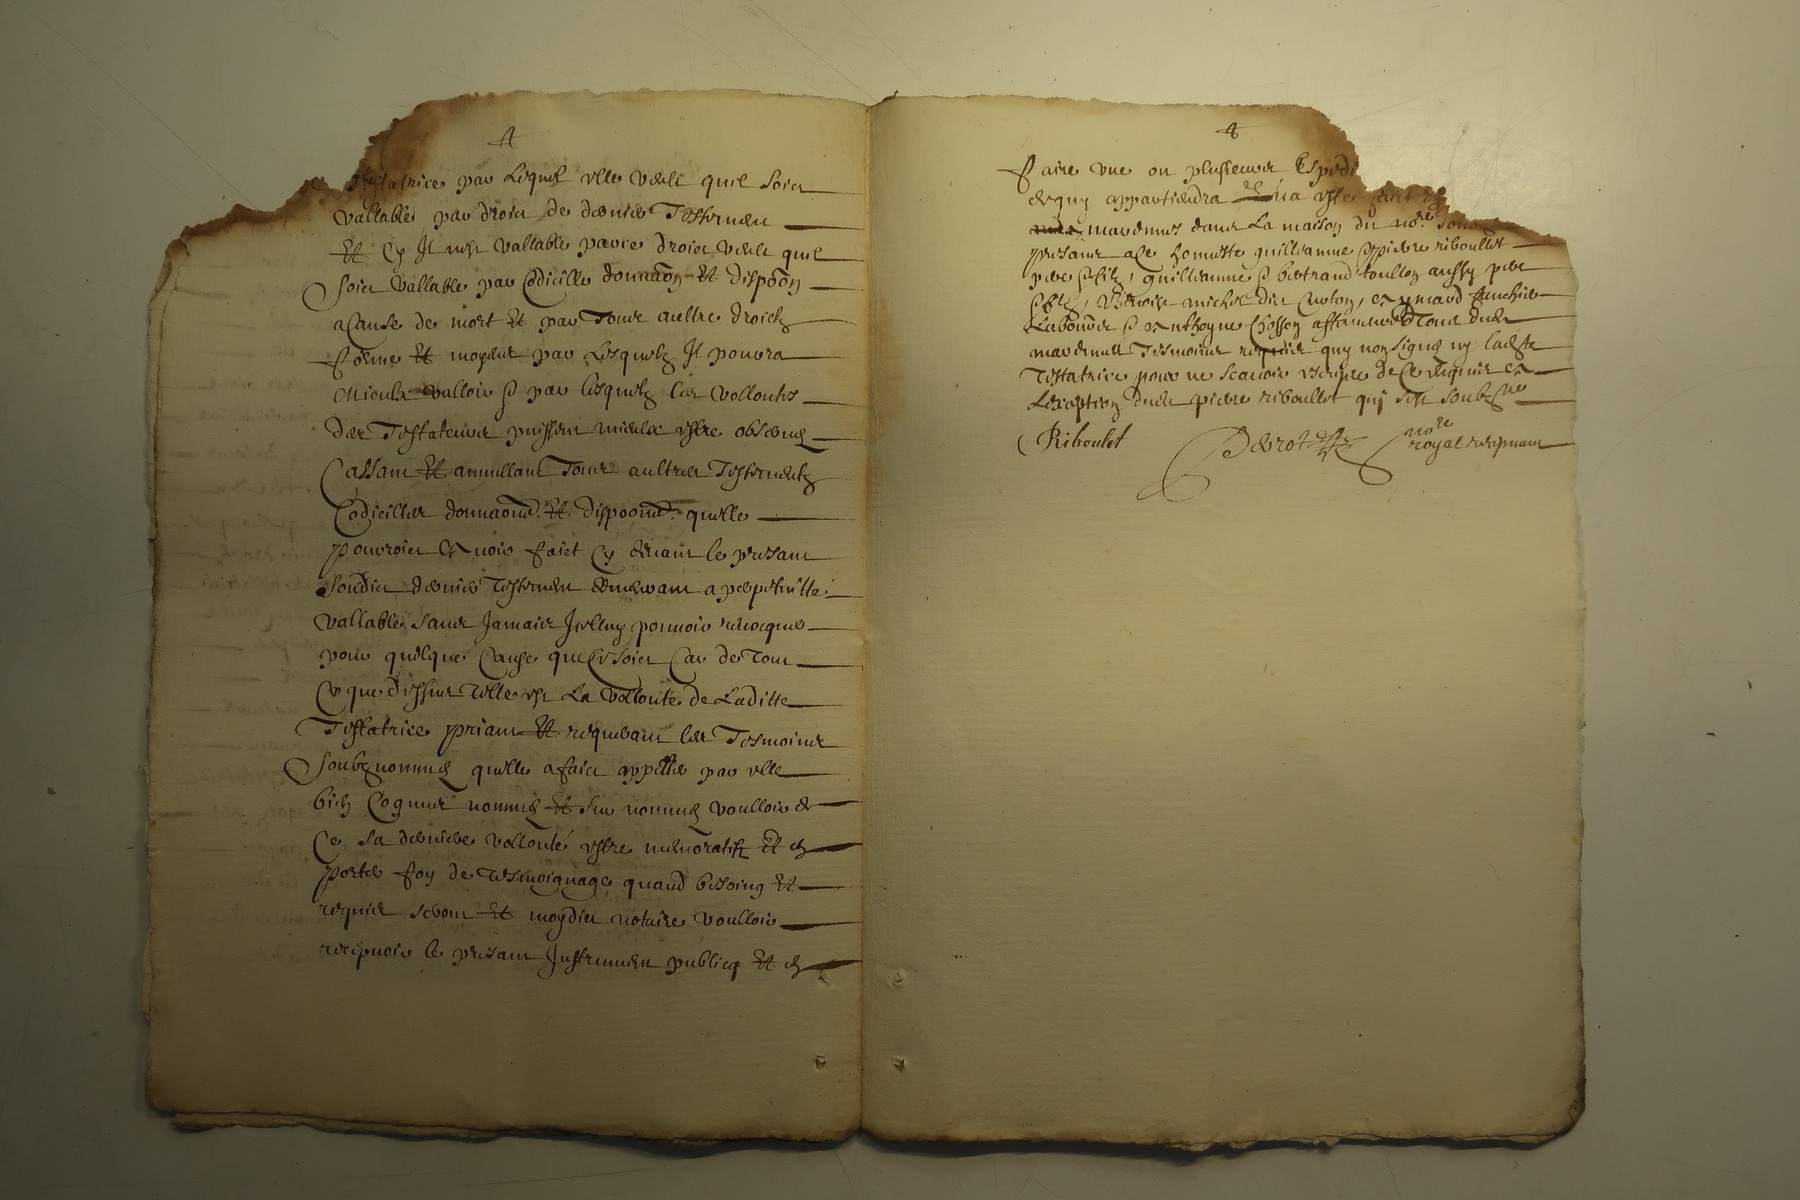 testatrice par lequel elle veult quil soict
vallable par droict de dernier testement
Et sy Il nest vallable par ce droict veult quil
soict vallable par codicille donnaon Et dispoon
a cause de mort Et par tous aultre droictz
forme Et moyens par lesquelz Il pourra
mieulx valloir & par lesquelz les vollontes
des testateurs puissent mieulx estre observes
Cassant Et annullant tous aultres testementz
Codicilles donnaons Et dispoons quelle
pourroict avoir faict cy devant le presant
sondict dernier testement demeurant a perpetuitté
vallable sans Jamais Icelluy pouvoir revocquer
pour quelque cause que ce soict Car de tout
ce que dessus telle est La vollonte de Laditte
Testatrice priant Et requerant les tesmoings
soubznommes quelle a faict appeller par elle
bien cognus nommes Et sur nommes voulloir de
Ce sa derniere vollonté estre memoratifz Et en
porter foy de tesmoignage quand besoing Et
requis seront Et moydict notaire voulloir
recepvoir le presant Instrument publicq Et en
faire une ou plusieurs Expedi
a quy appartiendra a esté faict
dans La maison du no.re
presant a ce honneste guilleaume & pierre riboullet
pere & filz, guilleaume & bertrand toullon aussy pere
& filz, Benoist michel dict Curton, aymard
Laboureur & anthoyne tous dudict
tesmoings requis quy non signe ny laditte
testatrice pour ne scavoir escripre de ce requis a
Lexeption dudict pierre riboullet qui sest soubzne
Riboulet
no.re
royal recepvant